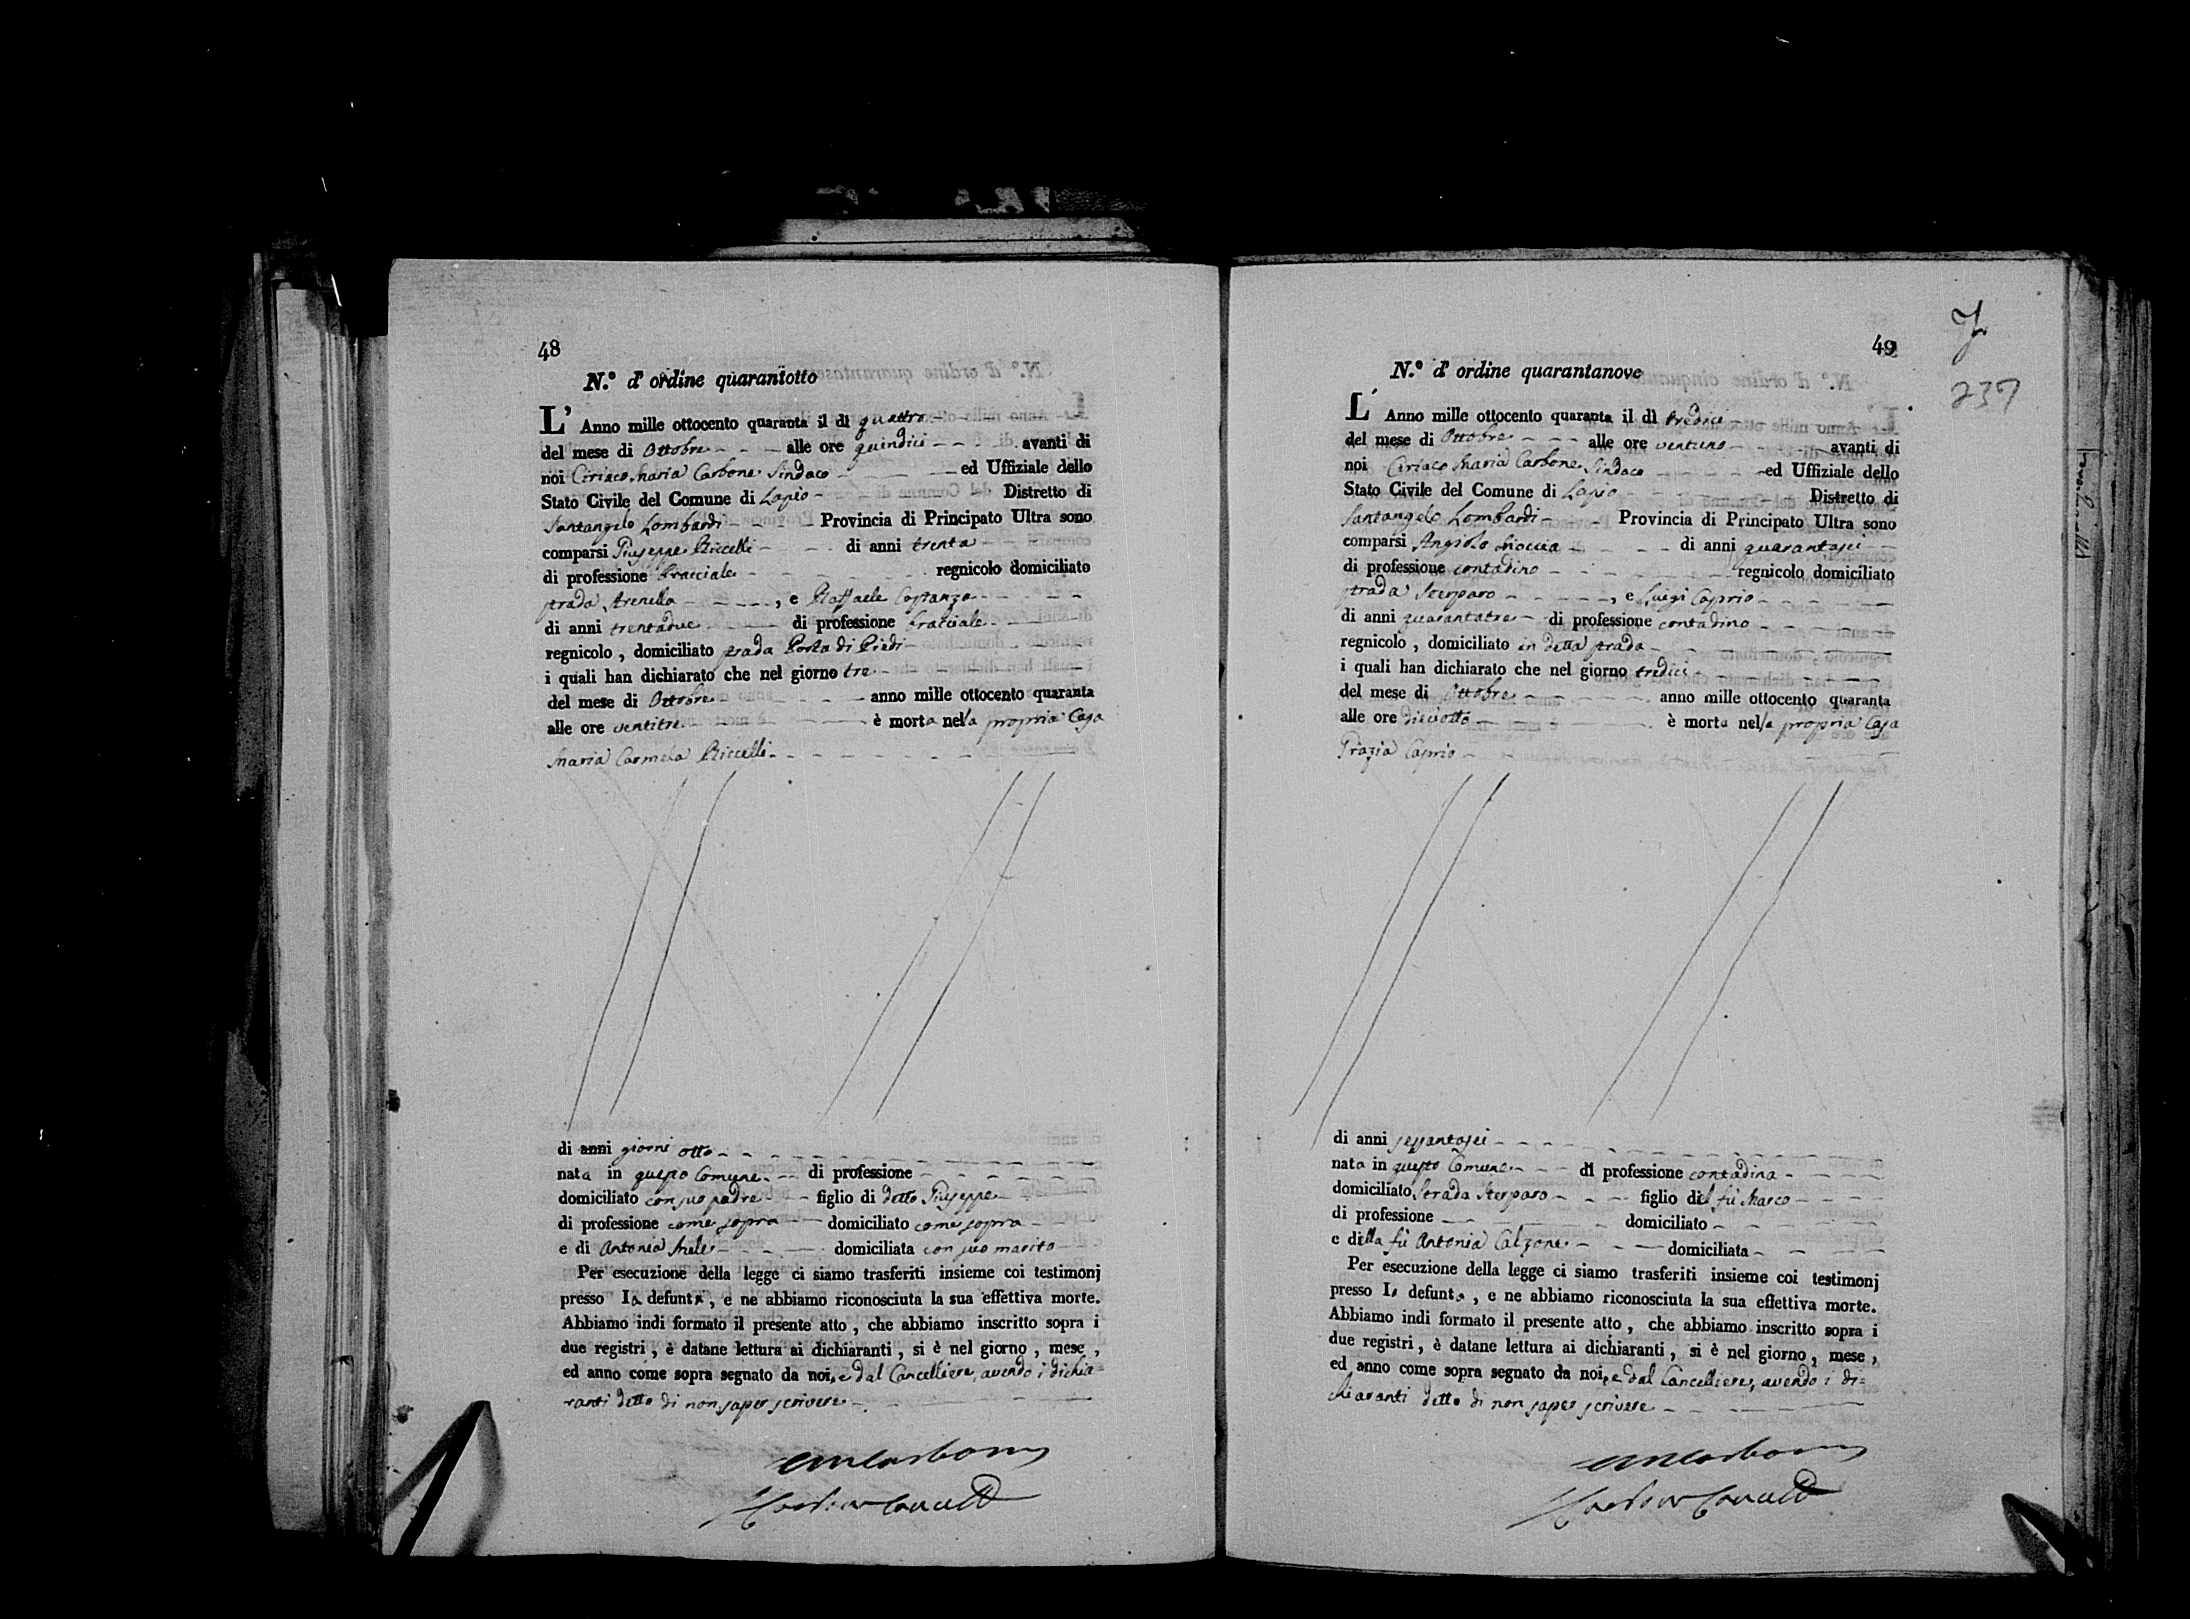 48
N.º d' ordine quarantotto
L' Anno mille ottocento quaranta il dì quattro
del mese di Ottobre alle ore quindici avanti di
noi Ciriaco Maria Carbone Sindaco ed Uffiziale dello
Stato Civile del Comune di Lapio Distretto di
Santangelo Lombardi Provincia di Principato Ultra sono
comparsi Giuseppe Riccelli di anni trenta
di professione bracciale regnicolo domiciliato
strada Arenella , e Raffaele Costanzo
di anni trentadue di professione bracciale
regnicolo , domiciliato strada Porta di Piedi
i quali han dichiarato che nel giorno tre
del mese di Ottobre anno mille ottocento quaranta
alle ore ventitre è morta nella propria Casa
Maria Carmela Riccelli
di anni giorni otto
nata in questo Comune di professione
domiciliato con suo padre figlio di detto Giuseppe
di professione come sopra domiciliato come sopra
e di Antonia domiciliata con suo marito
Per esecuzione della legge ci siamo trasferiti insieme coi testimonj
presso la defunta , e ne abbiamo riconosciuta la sua effettiva morte.
Abbiamo indi formato il presente atto , che abbiamo inscritto sopra i
due registri , è datane lettura ai dichiaranti , si è nel giorno , mese ,
ed anno come sopra segnato da noi, e dal Cancelliere, avendo i dichia=
ranti detto di non saper scrivere
49
237
N.º d' ordine quarantanove
L' Anno mille ottocento quaranta il dì tredici
del mese di Ottobre alle ore ventuno avanti di
noi Ciriaco Maria Carbone Sindaco ed Uffiziale dello
Stato Civile del Comune di Lapio Distretto di
Santangelo Lombardi Provincia di Principato Ultra sono
comparsi Angiolo di anni quarantasei
di professione contadino regnicolo domiciliato
strada Sterparo , e Luigi Caprio
di anni quarantatre di professione contadino
regnicolo , domiciliato in detta strada
i quali han dichiarato che nel giorno tredici
del mese di Ottobre anno mille ottocento quaranta
alle ore dieciotto è morta nella propria Casa
Grazia Caprio
di anni sessantasei
nata in questo Comune di professione contadina
domiciliato Strada Sterparo figlio del fù Marco
di professione domiciliato
e della fù Antonia Calzone domiciliata
Per esecuzione della legge ci siamo trasferiti insieme coi testimonj
presso la defunta , e ne abbiamo riconosciuta la sua effettiva morte.
Abbiamo indi formato il presente atto , che abbiamo inscritto sopra i
due registri , è datane lettura ai dichiaranti , si è nel giorno , mese ,
ed anno come sopra segnato da noi, e dal Cancelliere, avendo i di=
chiaranti detto di non saper scrivere